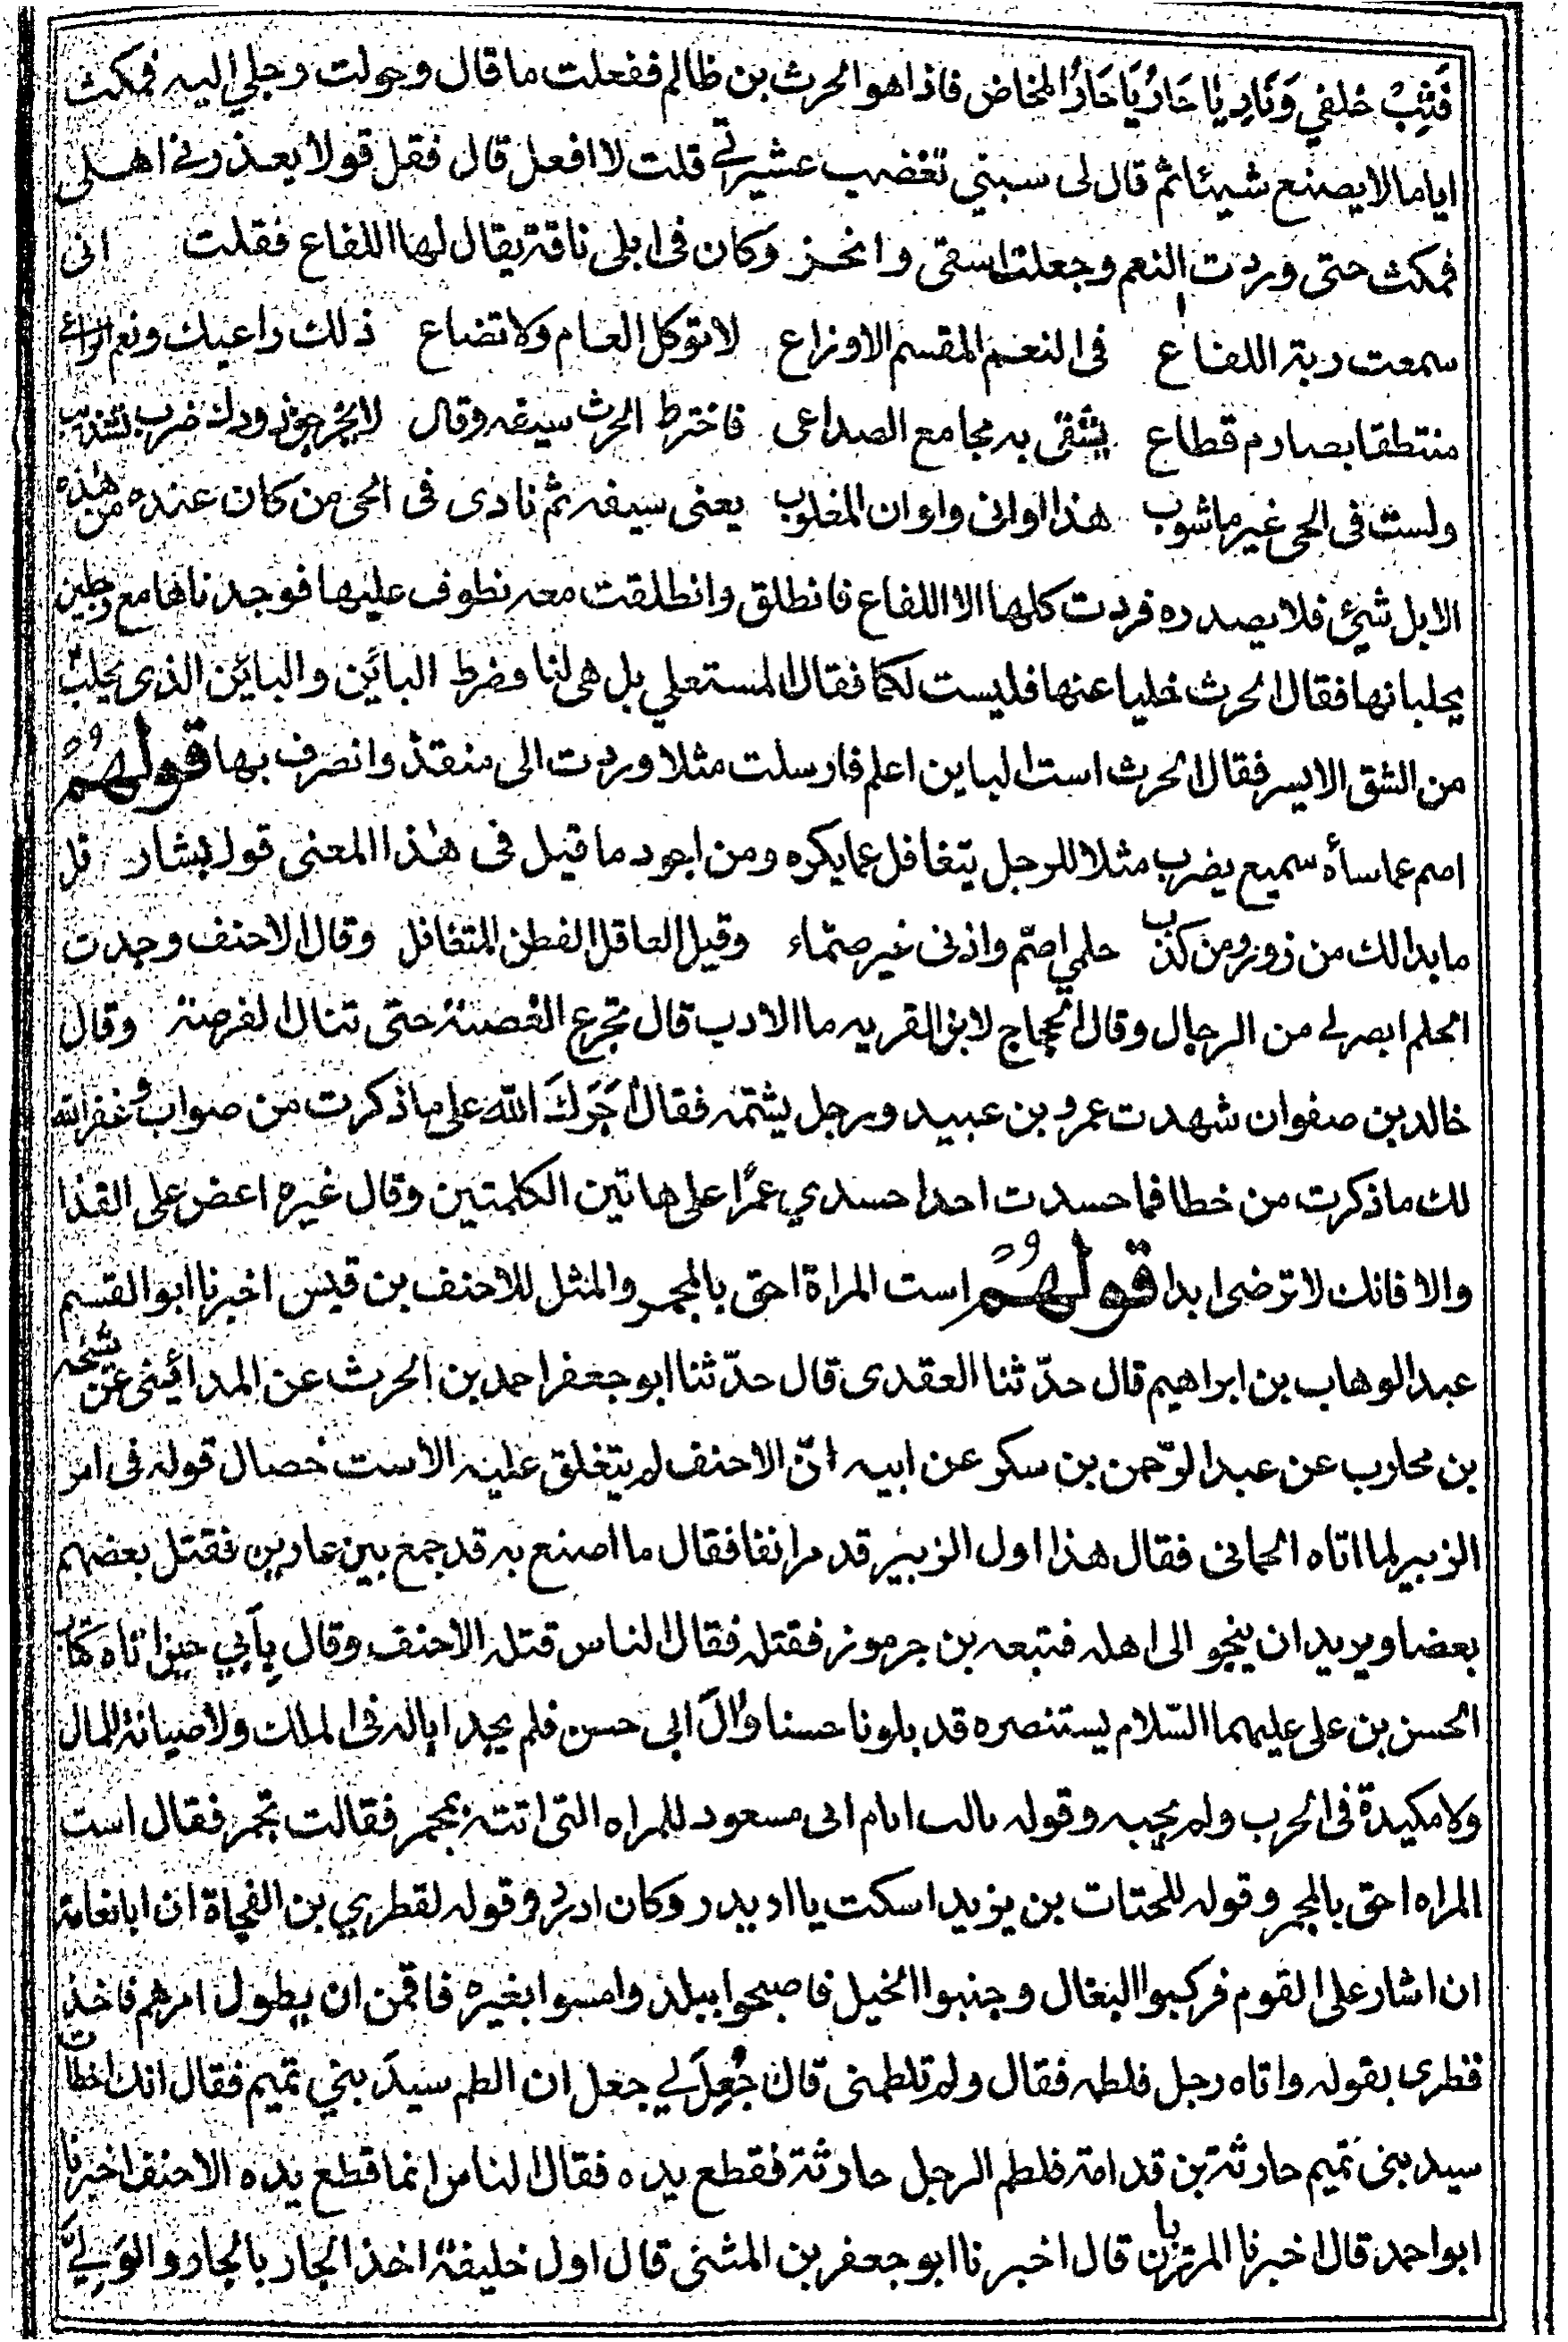 فَثِبْ خلفي وَنَادِ يَا حَارُ يَا حَارُ المخاض فاذا هو الحرث بن ظالم ففعلت ما قال وحولت رحلي اليه فمكث
اياما لا يصنع شيئا ثم قال لى سبني تغضب عشيرتي قلت لا افعل قال فقل قولا يعذرني اهلى
فمكث حتى وردت النعم وجعلت اسقى وانحز وكان فى ابلى ناقة يقال لها اللفاع فقلت انى
سمعت ربة اللفاع فى النعم المقسم الاوزاع لا توكل العام ولا تضاع ذلك راعيك ونعم الراعي
منتطقا بصارم قطاع يشقى به مجامع الصداعى فاخترط الحرث سيفه وقال لا يخرجو ذودك ضرب تشذيب
ولست فى الحى غير ماشوب هذا اوانى واوان المغلوب يعنى سيفه ثم نادى فى الحى من كان عنده من هذه
الابل شئ فلا يصدره فردت كلها الا اللفاع فانطلق وانطلقت معه نطوف عليها فوجدناها مع رجلين
يحلبانها فقال الحرث خليا عنها فليست لكما فقال المستعلي بل هى لنا وضرط البائن والبائن الذى يحلب
من الشق الايسر فقال الحرث است الباين اعلم فارسلت مثلا وردت الى منقذ وانصرف بها قولهُمْ
اصم عما ساه سميع يضرب مثلا للرجل يتغافل عما يكره ومن اجود ما قيل فى هذا المعنى قول بشار قل
ما بدا لك من زور ومن كذب حلمي اصّم واذنى غير صمّاء وقيل العاقل الفطن المتغافل وقال الاحنف وجدت
الحلم ابصر لى من الرجال وقال الحجاج لابن القريه ما الادب قال تجرع الغصة حتى تنال الفرصة وقال
خالد بن صفوان شهدت عمرو بن عبيد ورجل يشتمه فقال اجَرَكَ الله على ما ذكرت من صواب وغفر الله
لك ما ذكرت من خطا فما حسدت احدا حسدي عمرًا على هاتين الكلمتين وقال غيره اعض على القذا
والا فانك لا ترضى ابدا قولهُمْ است المراة احق بالمجمر والمثل للاحنف بن قيس اخبرنا ابو القسم
عبد الوهاب بن ابراهيم قال حدّثنا العقدى قال حدّثنا ابو جعفر احمد بن الحرث عن المدائينى عن شيخه
بن محارب عن عبد الرّحمن بن سكر عن ابيه انّ الاحنف لم يتغلق عليه الا ست خصال قوله فى امر
الزبير لما اتاه الحمانى فقال هذا اول الزبير قد مر انفا فقال ما اصنع به قد جمع بين عارين فقتل بعضهم
بعضا ويريد ان ينجو الى اهله فتبعه بن جرموز فقتله فقال الناس قتله الاحنف وقال يأبي حين اتاه كتاب
الحسن بن على عليهما السّلام يستنصره قد بلونا حسنا وآلَ ابى حسن فلم يجد اياله فى الملك ولا صيانة للمال
ولا مكيدة فى الحرب ولم يجبه وقوله ايام ابى مسعود للمراه التى اتته بمجمر فقالت تجمر فقال است
المراه احق بالمجمر وقوله للحتات بن يزيد اسكت يا اديدر وكان ادر وقوله لقطري بن الفجاة ان ابا نعامة
ان اشار على القوم فركبوا البغال وجنبوا الخيل فاصبحوا ببلد وامسوا بغيره فاقمن ان يطول امرهم فاخذ
قطرى بقوله واتاه رجل فلطمه فقال ولم تلطمنى قال جُعِلَ لي جعل ان الطم سيدَ بنى تميم فقال انك اخطات
سيد بنى تميم حارثة بن قدامة فلطم الرجل حارثة فقطع يده فقال الناس انما قطع يده الاحنف اخبرنا
ابو احمد قال اخبرنا المرزبان قال اخبرنا ابو جعفر بن المثنى قال اول خليفة اخذ الجار بالجار والوَلِيَّ